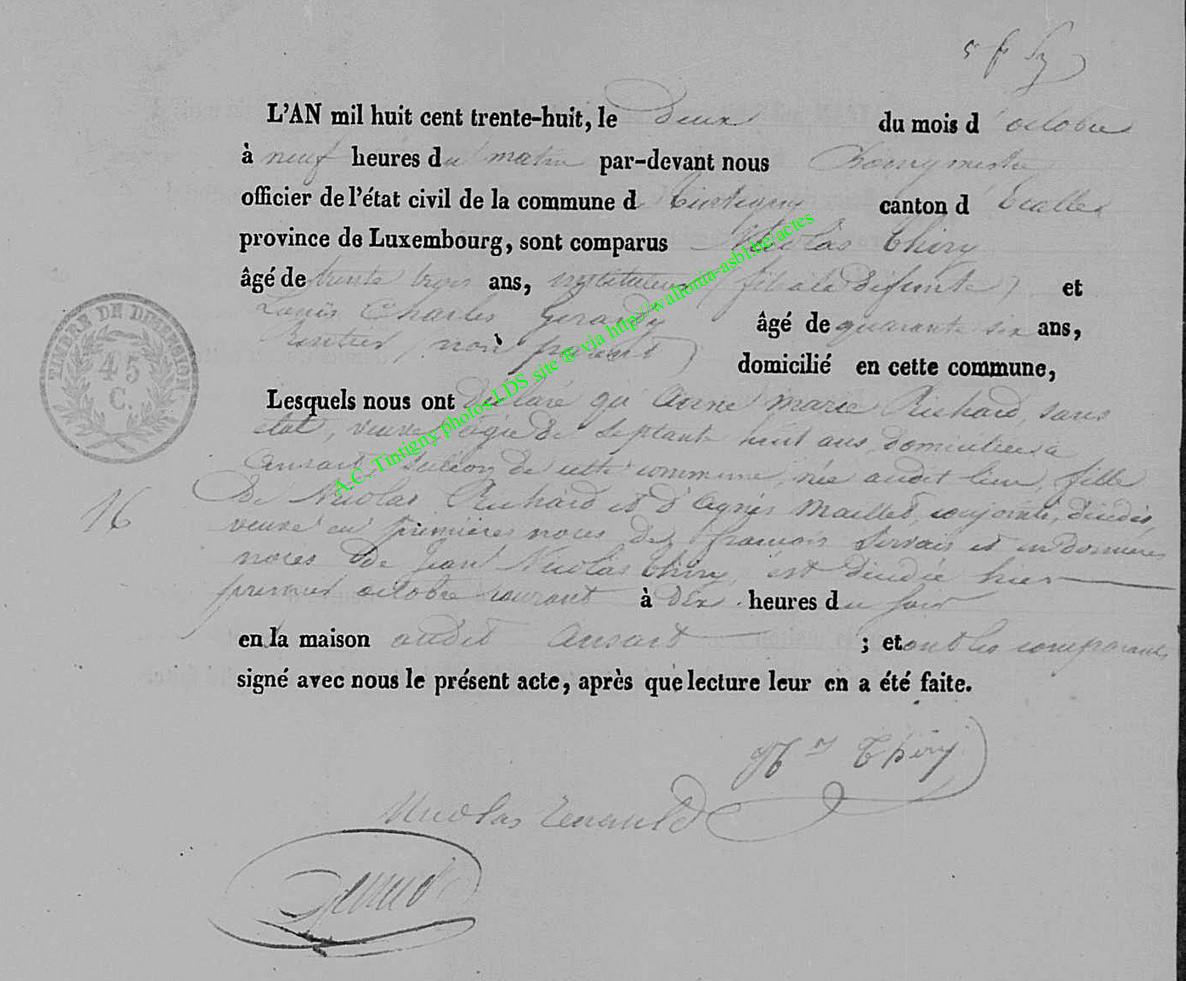 L'AN mil huit cent trente-huit, le deux du mois d'octobre
à neuf heures du matin par-devant nous Bourgmestre
officier de l'état civil de la commune de Tintigny canton d'Etalle
province de Luxembourg, sont comparus Nicolas Thiry
âgé de trente trois ans, instituteur (fils à la défunte) et
Louis Charles Gerardy âgé de quarante six ans,
Rentier, (non parent) domicilié en cette commune,
Lesquels nous ont déclaré qu'Anne Marie Richard, sans
état, veuve, âgée de septante huit ans, domiciliée à
Ansart, section de cette commune née audit lieu, fille
16
de Nicolas Richard et d'Agnès Maillet, conjoints, décédés,
veuve en premières noces de françois Servais et en dernières
noces de Jean Nicolas Thiry, est décédée hier
premier octobre courant à dix heures du soir
en la maison audit Ansart ; et ont les comparants
signé avec nous le présent acte, après que lecture leur en a été faite.
Ns Thiry
Nicolas Renauld
TIMBRE DE DIMENSION
45
C.
A.C. Tintigny photos LDS site ® via http://wallonia-asbl.be/actes